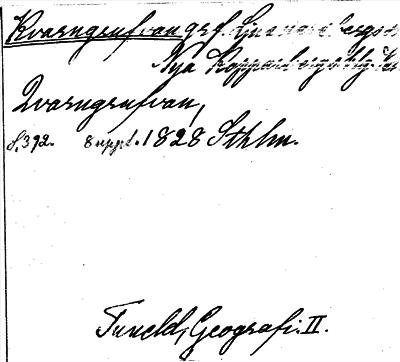 Kvarngrufvan grf. Ljusnarsbergs
Nya Kopparbergs htg.
Qvarngrufvan,
S. 392. 8 uppl. 1828 Sthlm.
Tuneld, Geografi. II.